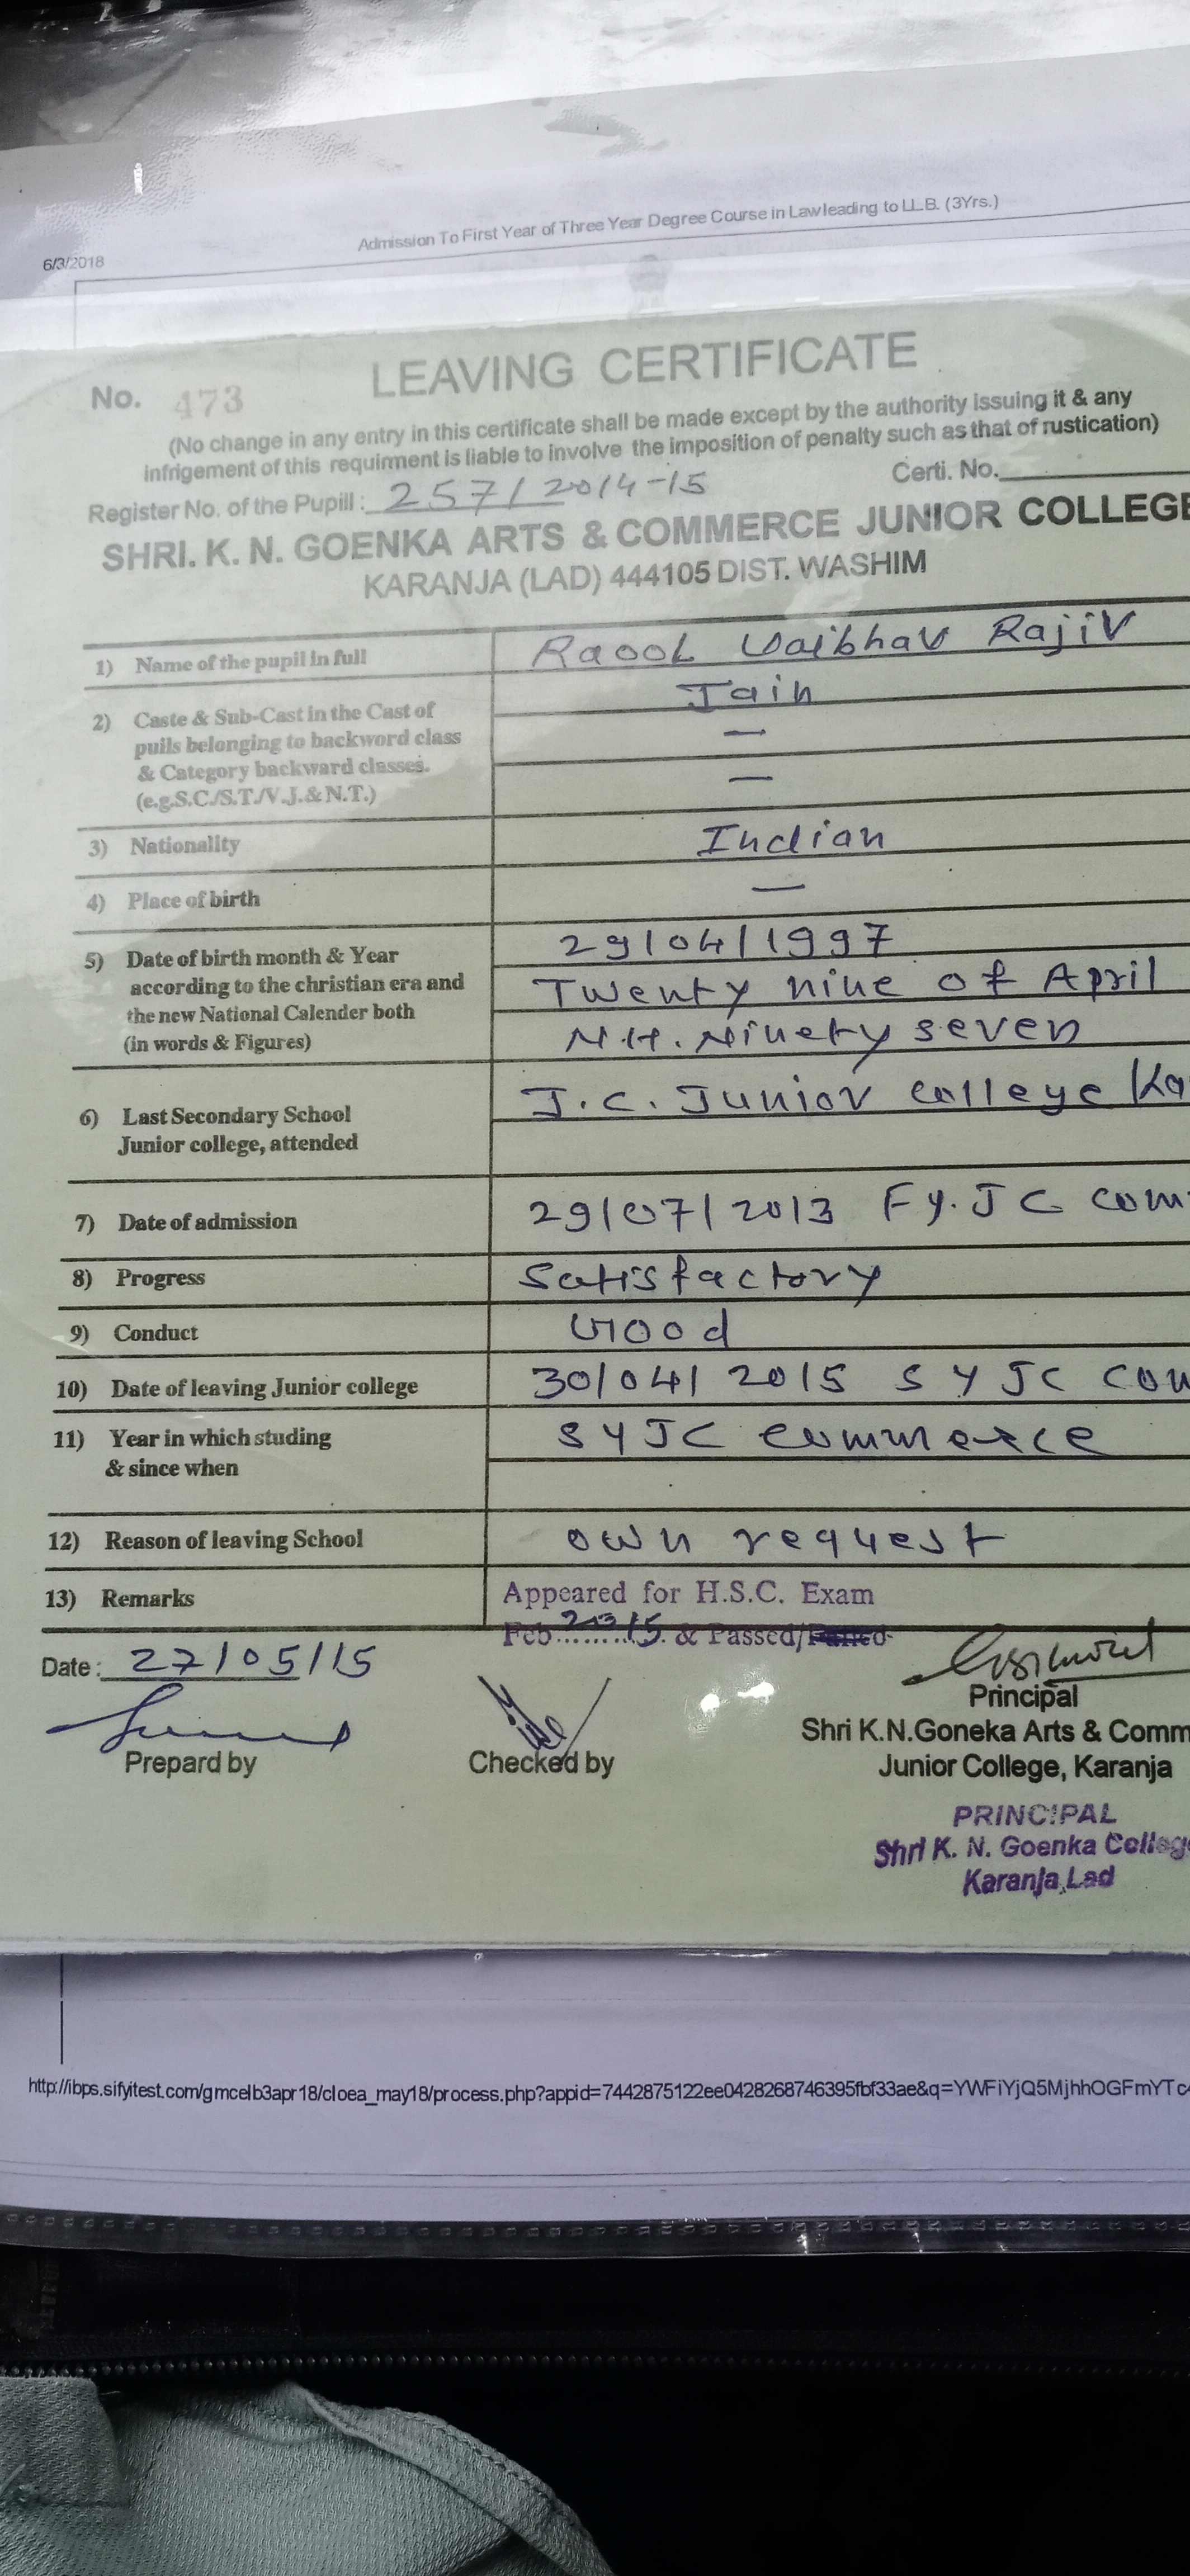 Admission To First Year of Three Year Degree Course in Law leading to LL.B. (3Yrs.)
6/3/2018
LEAVING CERTIFICATE
No. 473
(No change in any entry in this certificate shall be made except by the authority issuing it & any
infrigement of this requirment is liable to involve the imposition of penalty such as that of rustication)
Certi. No.
Register No. of the Pupill : 257/2014-15
SHRI. K. N. GOENKA ARTS & COMMERCE JUNIOR COLLEGE
KARANJA (LAD) 444105 DIST. WASHIM
1) Name of the pupil in full Raool Vaibhav Rajiv
2) Caste & Sub-Cast in the Cast of Jain
puils belonging to backword class —
& Category backward classes. —
(e.g.S.C./S.T./V.J.& N.T.)
3) Nationality Indian
4) Place of birth —
5) Date of birth month & Year 29/04/1997
according to the christian era and Twenty nine of April
the new National Calender both N.H. Ninety seven
(in words & Figures)
6) Last Secondary School J.C. Junior college Ka
Junior college, attended
7) Date of admission 29/07/2013 Fy. JC com
8) Progress Satisfactory
9) Conduct Good
10) Date of leaving Junior college 30/04/2015 SYJC com
11) Year in which studing SYJC commerce
& since when
12) Reason of leaving School own request
13) Remarks Appeared for H.S.C. Exam
Feb 2015 & Passed/Failed
Date : 27/05/15
Principal
Prepard by Checked by Shri K.N.Goneka Arts & Comm
Junior College, Karanja
PRINCIPAL
Shri K. N. Goenka College
Karanja Lad
http://ibps.sifyitest.com/gmcelb3apr18/cloea_may18/process.php?appid=7442875122ee0428268746395fbf33ae&q=YWFiYjQ5MjhhOGFmYTc